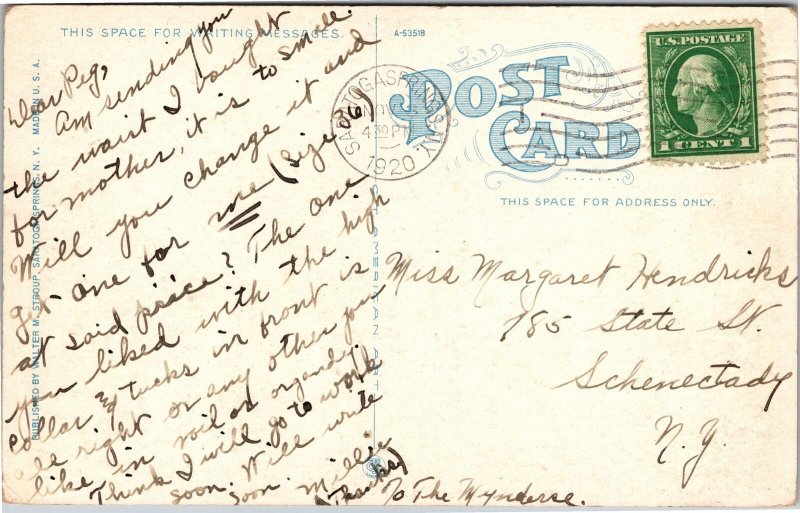 THIS SPACE FOR WRITING MESSAGES.
A-53518
POST
CARD
THIS SPACE FOR ADDRESS ONLY.
U.S. POSTAGE
1 CENT 1
SARATOGA SPRINGS, N.Y.
NOV
4 30 P
1920
PUBLISHED BY WALTER M. STROUP, SARATOGA SPRINGS, N. Y. MADE IN U. S. A.
AMERICAN ART
Dear Peg,
Am sending you
the waist I bought
for mother, it is to small.
Will you change it and
get one for me (size 36)
at said place? The one
you liked with the high
collar & tucks in front is
all right or any other you
like in voil or organdy.
Think I will go to work
soon. Will write
soon. Millie
(Thanks)
Miss Margaret Hendricks
785 State St.
Schenectady
N.Y.
To The Mynderse.